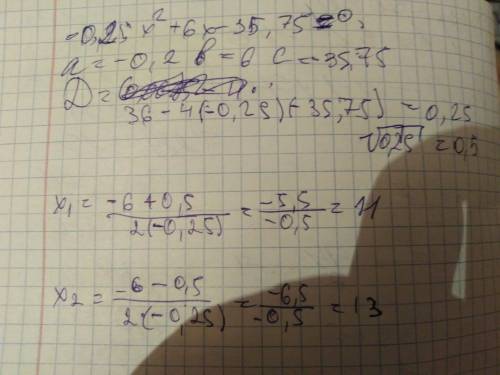 -0,25 x² + 6x - 35,75 = 0
a = -0,2 в = 6 c = -35,75
D =
36 - 4(-0,25)(-35,75) = 0,25
√0,25 = 0,5
x₁ = (-6 + 0,5)/(2(-0,25)) = (-5,5)/(-0,5) = 11
x₂ = (-6 - 0,5)/(2·(-0,25)) = (-6,5)/(-0,5) = 13